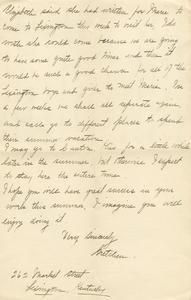 Elizabeth said she had written for Marie to
come to Lexington this week to visit her. I do
wish she would come because we are going
to have some quite good times and then it
would be such a good chance for all of the
Lexington boys and girls to meet Marie. In
a few weeks we shall all separate your
and each go to different places to spend
their summer vacation.
I may go to Canton for a little while
later in the summer, but otherwise I expect
to stay here the entire time.
I hope you will have great success in your
work this summer, I imagine you will
enjoy doing it.
Very Sincerely
262 Market Street
Lexington, Kentucky